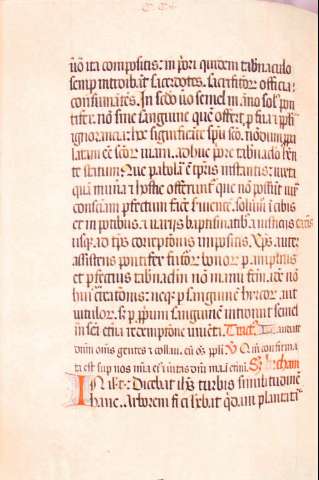 ṽo ita compositis: in p̃ori quidem tab̃naculo
semp introib̃at sacerdotes. sacrificior officia
consum̃ates. In sc̃do ṽo semel in año sol' pon
tifex. nõ sine sanguine quẽ offert, p sua et ppli
ignorancia: hoc significãte spũ sc̃o. nõdum ppa
latam eẽ sc̃or uiam. adhuc pore tab̃naclo hñ
te statum Que pabola ẽ tpris instantis: iuxta
quã muña et hostie offerũt que nõ possũt
consciam pfectum facẽ s'uientẽ. solum ĩ cibis
et in potibus. et variis baptismatib' et iusticiis carnis
usq; ad tp̃s correptionis impositis. Xp̃s. autẽ
assistens pontifex futuror bonor p amplius
et pfectius tab̃naclm nõ manu fcm. id ẽ nõ
hui' creationis: neq; p sanguinẽ hircor. aut
uitulor. s; p ppium sanguinẽ introiuit semel
in sc̃a et̃na redemptione inuẽta. Tract' Laudate
dñm om̃s gentes et collau. eũ oẽs ppli. V Qm̃ confirma
ta est sup nos mĩa ei' et uitas dñi ma. ĩ etñu. Sc̃dm lucham
In ill t. Dicebat ih̃s turbis similitudinẽ
hanc. Arborem fici habebat qdam plantatã